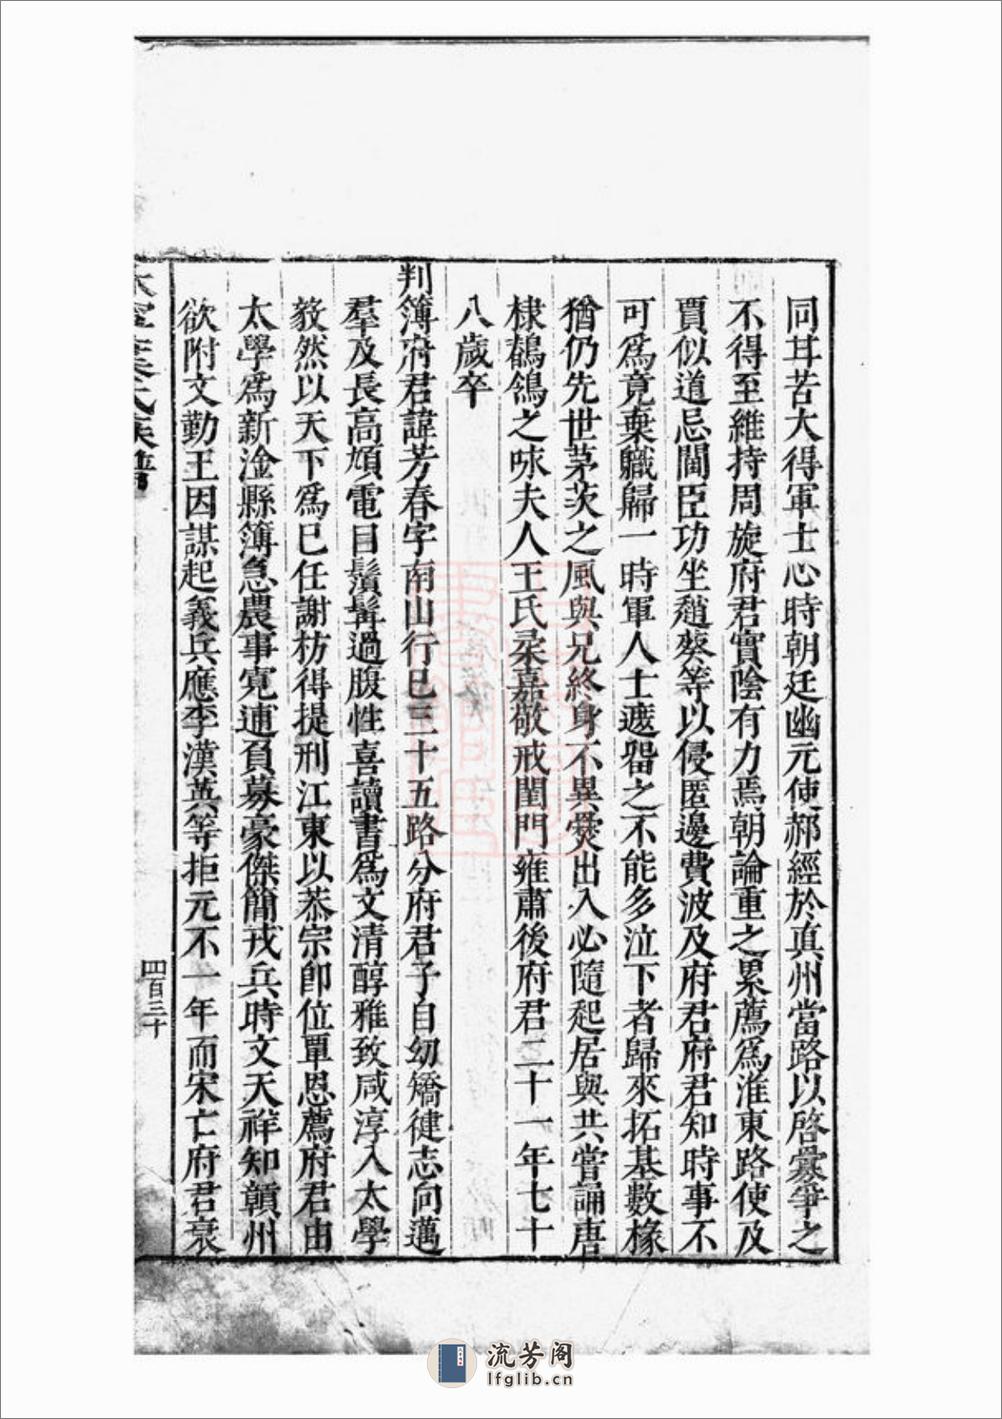 同耳苦大得軍士心時朝廷幽元使郝經於真州當路以啓釁爭之
不得至維持周旋府君實陰有力焉朝論重之累薦爲淮東路使及
賈似道忌閫臣功坐趙葵等以侵匿邊費波及府君府君知時事不
可爲竟棄職歸一時軍人士遮留之不能多泣下者歸來拓基數椽
猶仍先世茅茨之風與兄終身不異爨出入必隨起居與共嘗誦唐
棣鶺鴒之咏夫人王氏柔嘉敬戒閨門雍肅後府君二十一年七十
八歲卒
判簿府君諱芳春字南山行巳三十五路分府君子自幼矯健志向邁
羣及長高頎電目鬚髯過腹性喜讀書爲文清醇雅致咸淳入太學
毅然以天下爲已任謝枋得提刑江東以恭宗卽位覃恩薦府君由
太學爲新淦縣簿急農事寬逋負募豪傑簡戎兵時文天祥知贛州
欲附文勤王因謀起義兵應李漢英等拒元不一年而宋亡府君哀
葉氏族譜
四百三十
流芳阁
lfglib.cn